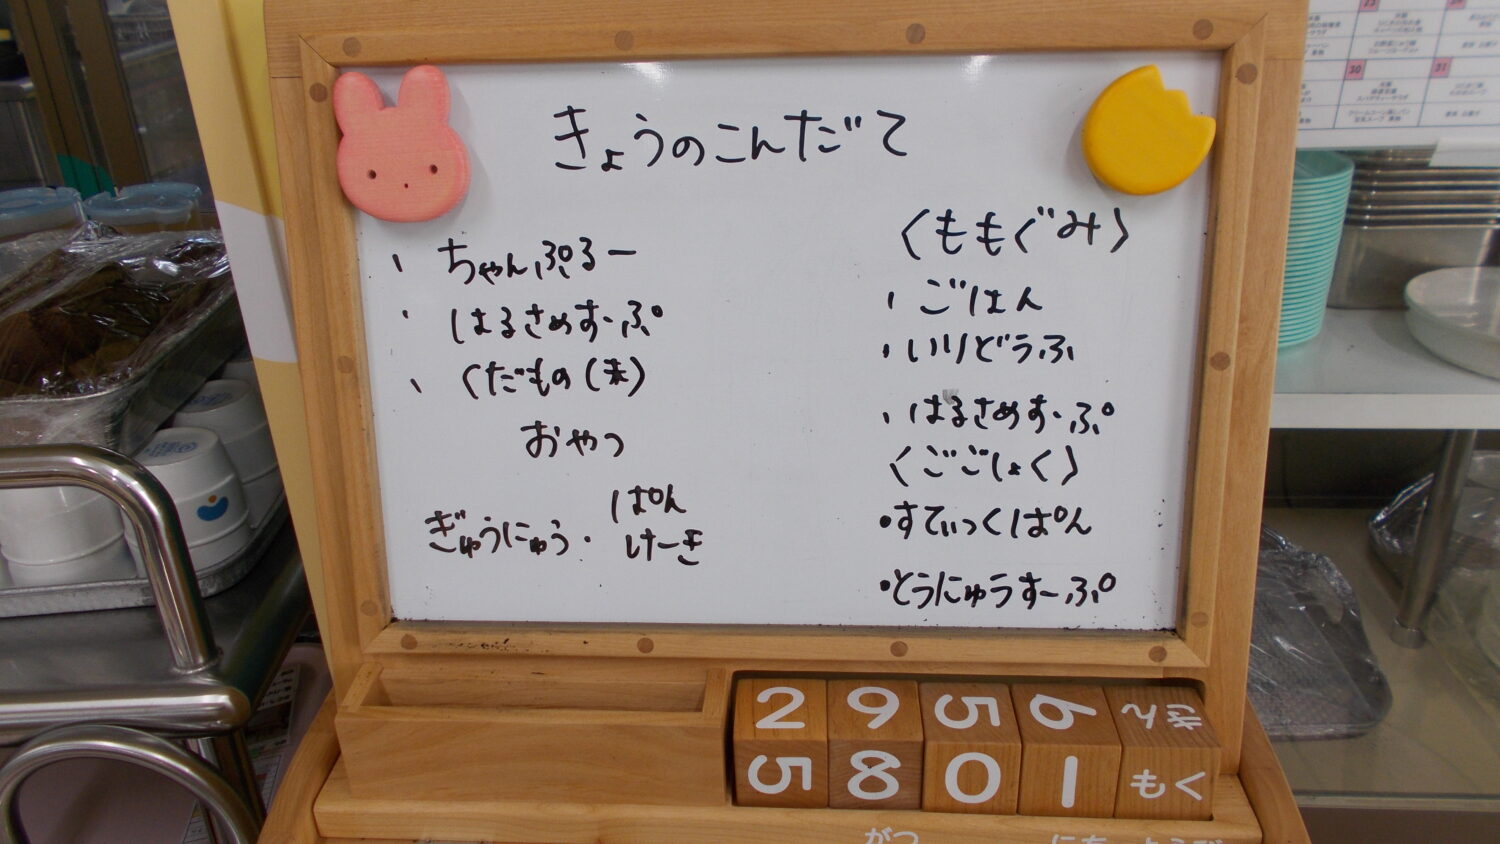 きょうのこんだて
・ ちゃんぷるー
・ はるさめすーぷ
・ くだもの(末)
おやつ
ぎゅうにゅう・ ぱん
けーき
〈ももぐみ〉
・ごはん
・いりどうふ
・はるさめすーぷ
〈ごごしょく〉
・すてぃっくぱん
・とうにゅうすーぷ
2 9 5 6 きん
5 8 0 1 もく
がつ にち ようび
30 31